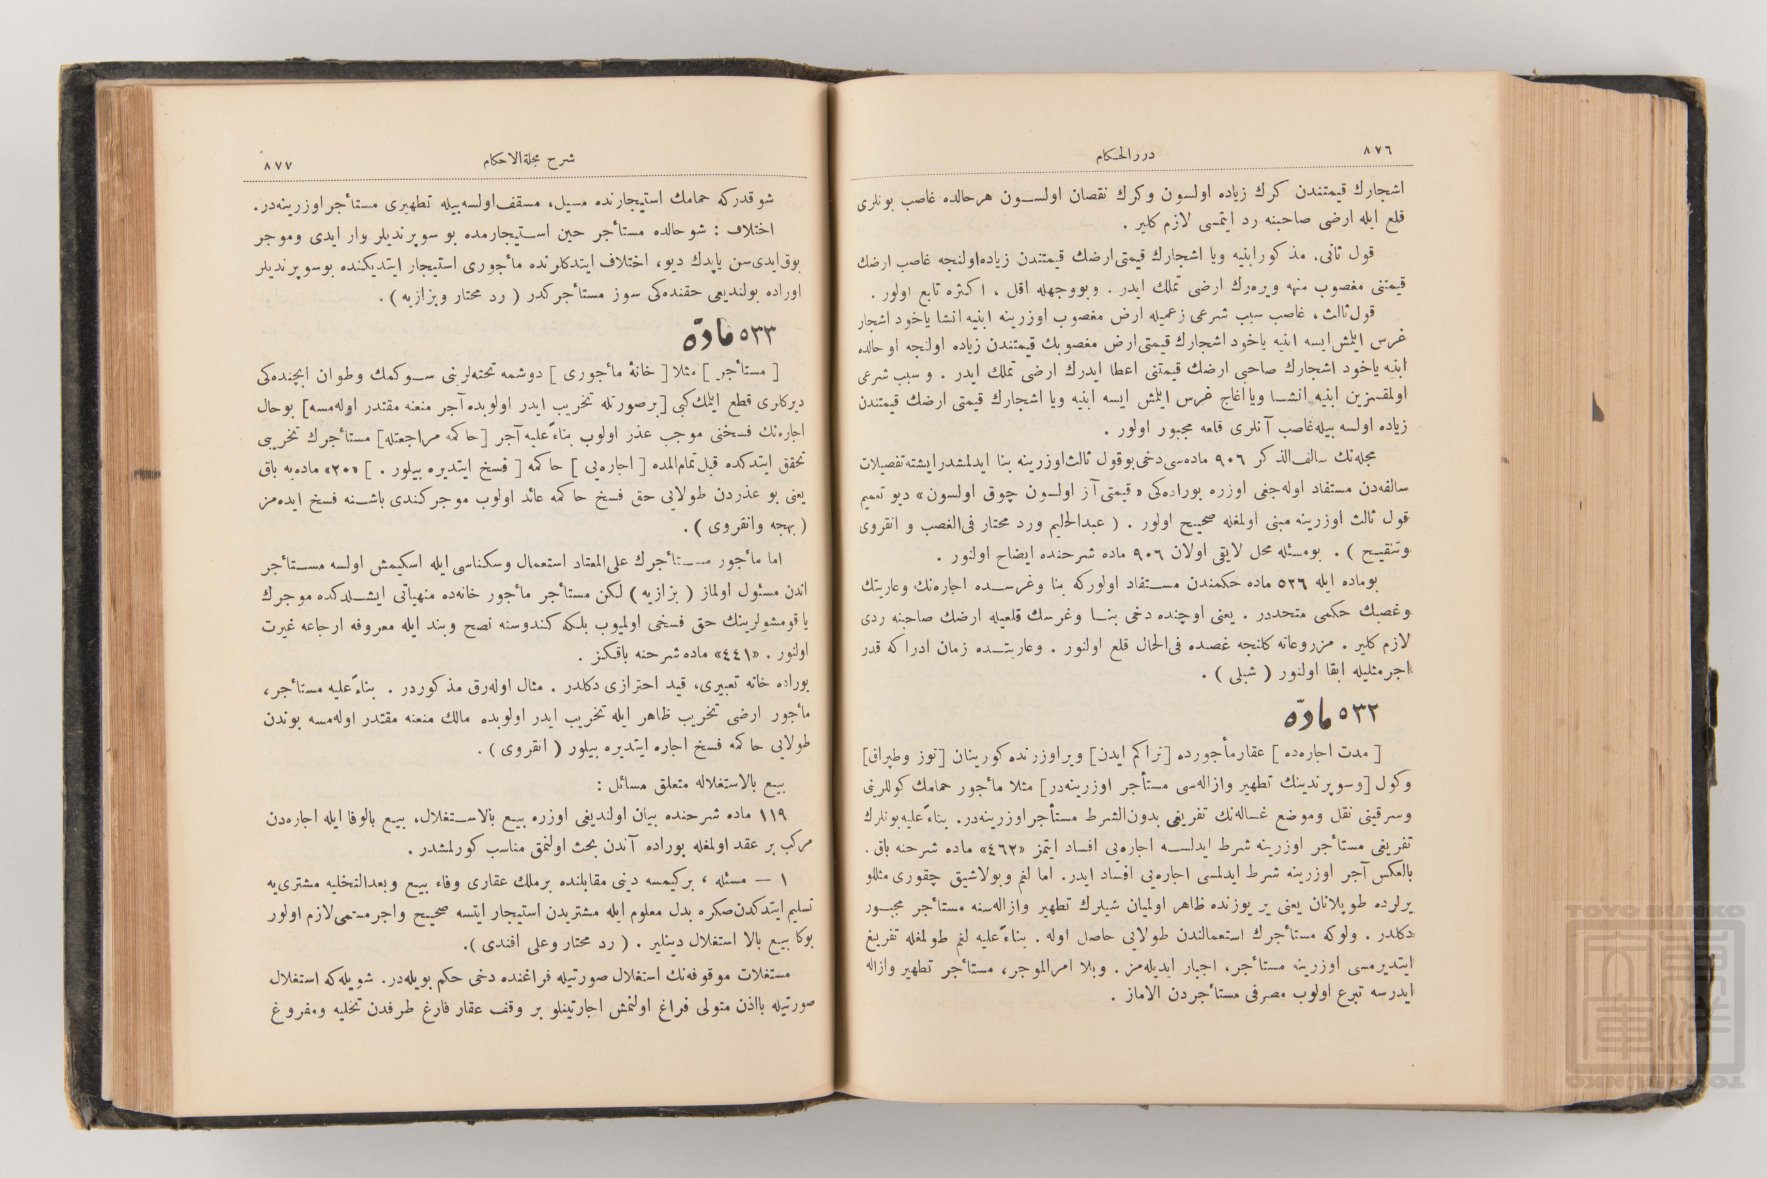 ٨٧٦
دررالحكام
اشجارك قيمتندن كرك زياده اولسون وكرك نقصان اولسون هرحالده غاصب بونلرى
قلع ايله ارضى صاحبنه رد ايتمسى لازم كلير .
قول ثانى، مذكور ابنيه ويا اشجارك قيمتى ارضك قيمتندن زياده اولنجه غاصب ارضك
قيمتنى مغصوب منهه ويره‌رك ارضى تملك ايدر . وبووجهله اقل ، اكثره تابع اولور .
قول ثالث ، غاصب سبب شرعى زعميله ارض مغصوب اوزرينه ابنيه انشا ياخود اشجار
غرس ايلمش ايسه ابنيه ياخود اشجارك قيمتى ارض مغصوبك قيمتندن زياده اولنجه او حالده
ابنيه ياخود اشجارك صاحبى ارضك قيمتنى اعطا ايدرك ارضى تملك ايدر . و سبب شرعى
اولمقسزين ابنيه انشا ويا اغاج غرس ايلمش ايسه ابنيه ويا اشجارك قيمتى ارضك قيمتندن
زياده اولسه بيله غاصب آنلرى قلعه مجبور اولور .
مجله‌نك سالف‌الذكر ٩٠٦ ماده‌سى دخى بو قول ثالث اوزرينه بنا ايدلمشدر ايشته تفصيلات
سالفه‌دن مستفاد اوله‌جغى اوزره بوراده‌كى « قيمتى آز اولسون چوق اولسون » ديو تعميم
قول ثالث اوزرينه مبنى اولمغله صحيح اولور . ( عبدالحليم ورد محتار فى‌الغصب و انقروى
وتنقيح ) . بومسئله محل لايقى اولان ٩٠٦ ماده شرحنده ايضاح اولنور .
بوماده ايله ٥٢٦ ماده حكمندن مستفاد اولوركه بنا وغرسده اجاره‌نك وعاريتك
وغصبك حكمى متحددر . يعنى اوچنده دخى بنا وغرسك قلعيله ارضك صاحبنه ردى
لازم كلير . مزروعاته كلنجه غصبده فى‌الحال قلع اولنور . وعاريتده زمان ادراكه قدر
اجر مثليله ابقا اولنور ( شبلى ) .
٥٣٢ مادّه
[ مدت اجاره‌ده ] عقار مأجورده [ تراكم ايدن ] وير اوزرنده كورينان [ توز وطپراق ]
وكول [ و سوپرندينك تطهير وازاله‌سى مستأجر اوزرينه‌در ] مثلا مأجور حمامك كوللرينى
وسرقينى نقل وموضع غساله‌نك تفريغى بدون‌الشرط مستأجر اوزرينه‌در. بناءً عليه بونلرك
تفريغى مستأجر اوزرينه شرط ايدلسه اجاره‌يى افساد ايتمز «٤٦٢» ماده شرحنه باق .
بالعكس آجر اوزرينه شرط ايدلمسى اجاره‌يى افساد ايدر. اما لغم وبولاشيق چقورى مثللو
يرلرده طوپلانان يعنى ير يوزنده ظاهر اولميان شيلرك تطهير وازاله‌سنه مستأجر مجبور
دكلدر . ولوكه مستأجرك استعمالندن طولايى حاصل اوله . بناءً عليه لغم طولمغله تفريغ
ايتديرمسى اوزرينه مستأجر، اجبار ايديله‌مز . وبلا امرالموجر، مستأجر تطهير وازاله
ايدرسه تبرع اولوب مصرفى مستأجردن الاماز .
شرح مجلةالاحكام
٨٧٧
شو قدركه حمامك استيجارنده مسيل، مسقف اولسه بيله تطهيرى مستأجر اوزرينه‌در.
اختلاف : شو حالده مستأجر حين استيجارمده بو سوپرنديلر وار ايدى وموجر
يوق ايدى سن ياپدك ديو، اختلاف ايتدكلرنده مأجورى استيجار ايتديكنده بوسوپرنديلر
اوراده بولنديغى حقنده‌كى سوز مستأجركدر ( رد محتار وبزازيه ) .
٥٣٣ مادّه
[ مستأجر ] مثلا [ خانۀ مأجورى ] دوشمه تخته‌لرينى سوكمك وطوان ايچنده‌كى
ديركلرى قطع ايلمك كبى [ برصورتله تخريب ايدر اولوبده آجر منعنه مقتدر اوله‌مسه ] بوحال
اجاره‌نك فسخنى موجب عذر اولوب بناءً عليه آجر [ حاكمه مراجعتله ] مستأجرك تخريبى
تحقق ايتدكده قبل تمام‌المده [ اجاره‌يى ] حاكمه [ فسخ ايتديره بيلور . ] «٢٠» ماده‌يه باق
يعنى بو عذردن طولايى حق فسخ حاكمه عائد اولوب موجر كندى باشنه فسخ ايده‌مز
( بهجه وانقروى ) .
اما مأجور مستأجرك على‌المعتاد استعمال وسكناسى ايله اسكيمش اولسه مستأجر
اندن مسئول اولماز ( بزازيه ) لكن مستأجر مأجور خانه‌ده منهياتى ايشلدكده موجرك
يا قومشولرينك حق فسخى اوليوب بلكه كندوسنه نصح وبند ايله معروفه ارجاعه غيرت
اولنور . «٤٤١» ماده شرحنه باقكز .
بوراده خانه تعبيرى، قيد احترازى دكلدر . مثال اوله‌رق مذكوردر . بناءً عليه مستأجر،
مأجور ارضى تخريب ظاهر ايله تخريب ايدر اولوبده مالك منعنه مقتدر اوله‌مسه بوندن
طولايى حاكمه فسخ اجاره ايتديره بيلور ( انقروى ) .
بيع بالاستغلاله متعلق مسائل :
١١٩ ماده شرحنده بيان اولنديغى اوزره بيع بالاستغلال، بيع بالوفا ايله اجاره‌دن
مركب بر عقد اولمغله بوراده آندن بحث اولنمق مناسب كورلمشدر .
١ — مسئله ، بركيمسه دينى مقابلنده برملك عقارى وفاء بيع وبعدالتخليه مشترى‌يه
تسليم ايتدكدن صكره بدل معلوم ايله مشتريدن استيجار ايتسه صحيح واجر مسمى لازم اولور
بوكا بيع بالا استغلال دينلير . ( رد محتار وعلى افندى ).
مستغلات موقوفه‌نك استغلال صورتيله فراغنده دخى حكم بويله‌در. شويله‌كه استغلال
صورتيله بااذن متولى فراغ اولنمش اجارتينلو بر وقف عقار فارغ طرفدن تخليه ومفروغ
TOYO BUNKO